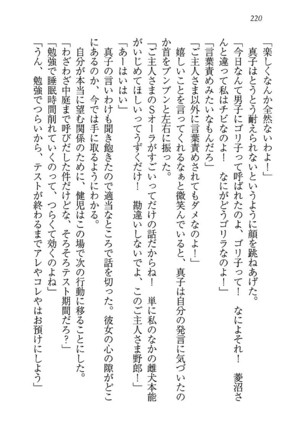 220
「楽しくなんか全然ないわよー」
真子はとうとう耐えられないというように顔を跳ねあげた。
「今日なんて男子にゴリ子って呼ばれたのよ、ゴリ子って！　なによそれ！　菱沼さ
んじゃないのよ！　私はチビなのよ！　なにがどうゴリラなのよー！」
「言葉責めみたいなもんだろ」
「ご主人さま以外に言葉責めされてもダメなのよー！」
嬉しいことを言ってくれるなぁと微笑んでいると、真子は自分の発言に気づいたの
か首をブンブンと左右に振った。
「ご主人さまのSオーラがすごいってだけの話だからね！　単に私のなかの雌犬本能
がいじめてほしいってうずくだけ！　勘違いしないでよ、このご主人さま野郎！」
「あーはいはい」
真子の言いわけも聞き飽きたので適当なところで話を切った。彼女の心の隙がどこ
にあるのか、今では手に取るようにわかる。
自分が本当に望む関係のために、健児はこの場で次の行動に移ることにした。
「わざわざ中庭まで呼びだした件だけどな、そろそろテスト期間だろ？」
「勉強で睡眠時間削れていくのって、つらくて効くのよね」
「うん、勉強でつらいから、テストが終わるまでアレやコレやはお預けにしよう」